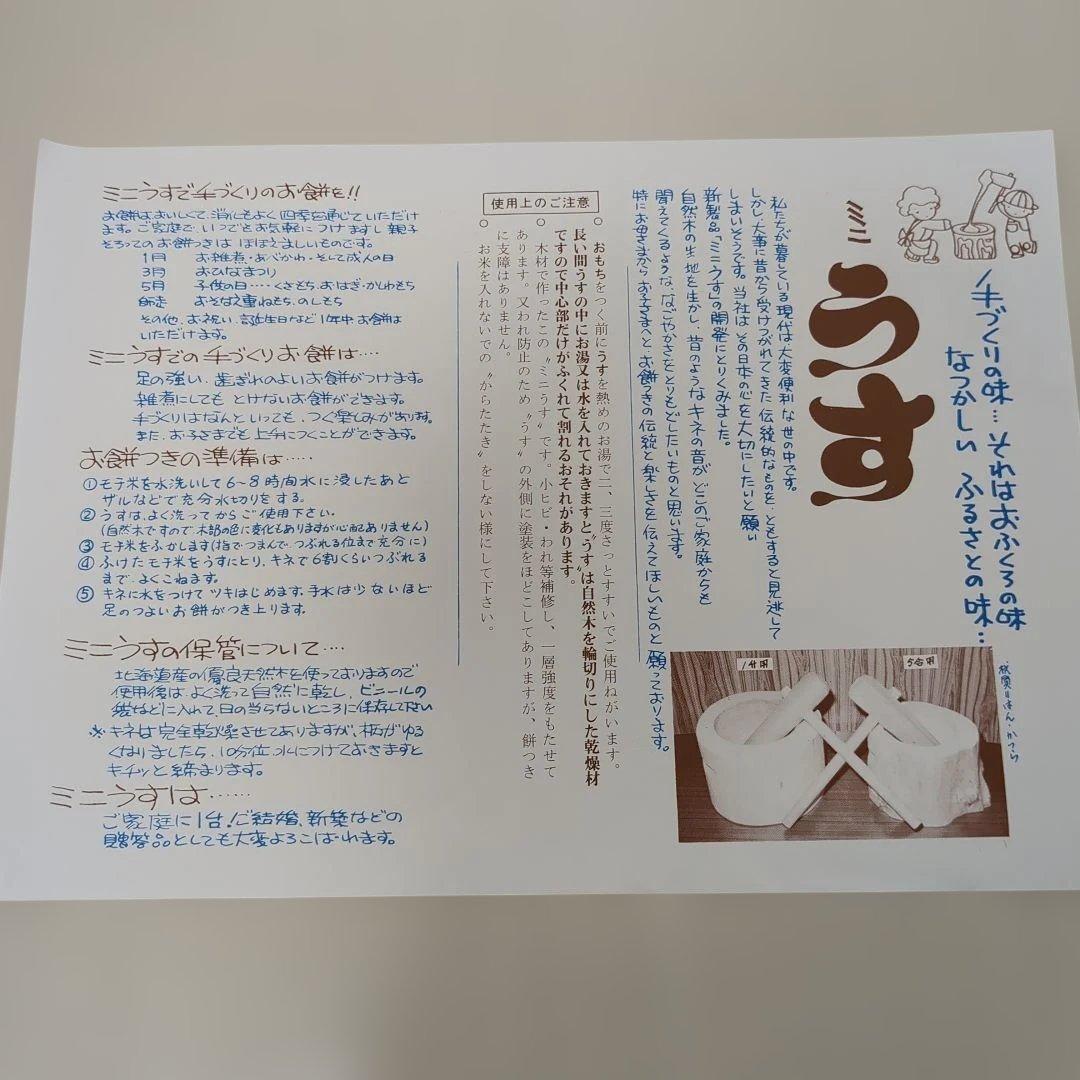 手づくりの味…それはおふくろの味
なつかしい ふるさとの味…
ミニ
うす
私たちが暮している現代は大変便利な世の中です。
しかし、大事に昔から受けつがれてきた伝統的なものを、ともすると見逃して
しまいそうです。当社は、その日本の心を大切にしたいと願い
新製品「ミニうす」の開発にとりくみました。
自然木の生地を生かし、昔のようなキネの音がどこのご家庭からも
聞えてくるような、なごやかさをとりもどしたいものと思います。
特にお母さまから、お子さまへと、お餅つきの伝統と楽しさを伝えてほしいものと願っております。
1升用
5合用
使用上のご注意
○ おもちをつく前にうすを熱めのお湯で二、三度さっとすすいでご使用ねがいます。
長い間うすの中にお湯又は水を入れておきますと〝うす〟は自然木を輪切りにした乾燥材
ですので中心部だけがふくれて割れるおそれがあります。
○ 木材で作ったこの〝ミニうす〟です。小ヒビ・われ等補修し、一層強度をもたせて
あります。又われ防止のため〝うす〟の外側に塗装をほどこしてありますが、餅つき
に支障はありません。
○ お米を入れないでの〝からたたき〟をしない様にして下さい。
ミニうすで手づくりのお餅を!!
お餅はおいしくて、消化もよく四季を通じていただけ
ます。ご家庭で、いつでもお気軽につけますし 親子
そろってのお餅つきは ほほえましいものです。
1月 お雑煮・あべかわ・そして成人の日
3月 おひなまつり
5月 子供の日‥‥くさもち、おはぎ・かしわもち
師走 おそなえ重ねもち、のしもち
その他、お祝い、誕生日など1年中お餅は
いただけます。
ミニうすでの手づくりお餅は‥‥
足の強い、歯ぎれのよいお餅がつけます。
雑煮にしても とけないお餅ができます。
手づくりはなんといっても、つく楽しみがあります。
また、お子さまでも上手につくことができます。
お餅つきの準備は‥‥
①モチ米を水洗いして6~8時間水に浸したあと
ザルなどで充分水切りをする。
②うすは、よく洗ってからご使用下さい。
(自然木ですので、木部の色に変化もありますが心配ありません)
③モチ米をふかします(指でつまんで、つぶれる位まで充分に)
④ふけたモチ米をうすにとり、キネで6割くらいつぶれる
まで、よくこねます。
⑤キネに水をつけてツキはじめます。手水は少ないほど
足のつよいお餅がつき上ります。
ミニうすの保管について‥‥
北海道産の優良天然木を使っておりますので
使用後は、よく洗って自然に乾し、ビニールの
袋などに入れて、日の当らないところに保存して下さい
※キネは完全乾燥させてありますが、柄がゆる
くなりましたら、10分位、水につけておきますと
キチッと締まります。
ミニうすは‥‥‥
ご家庭に1台!ご結婚、新築などの
贈答品としても大変よろこばれます。